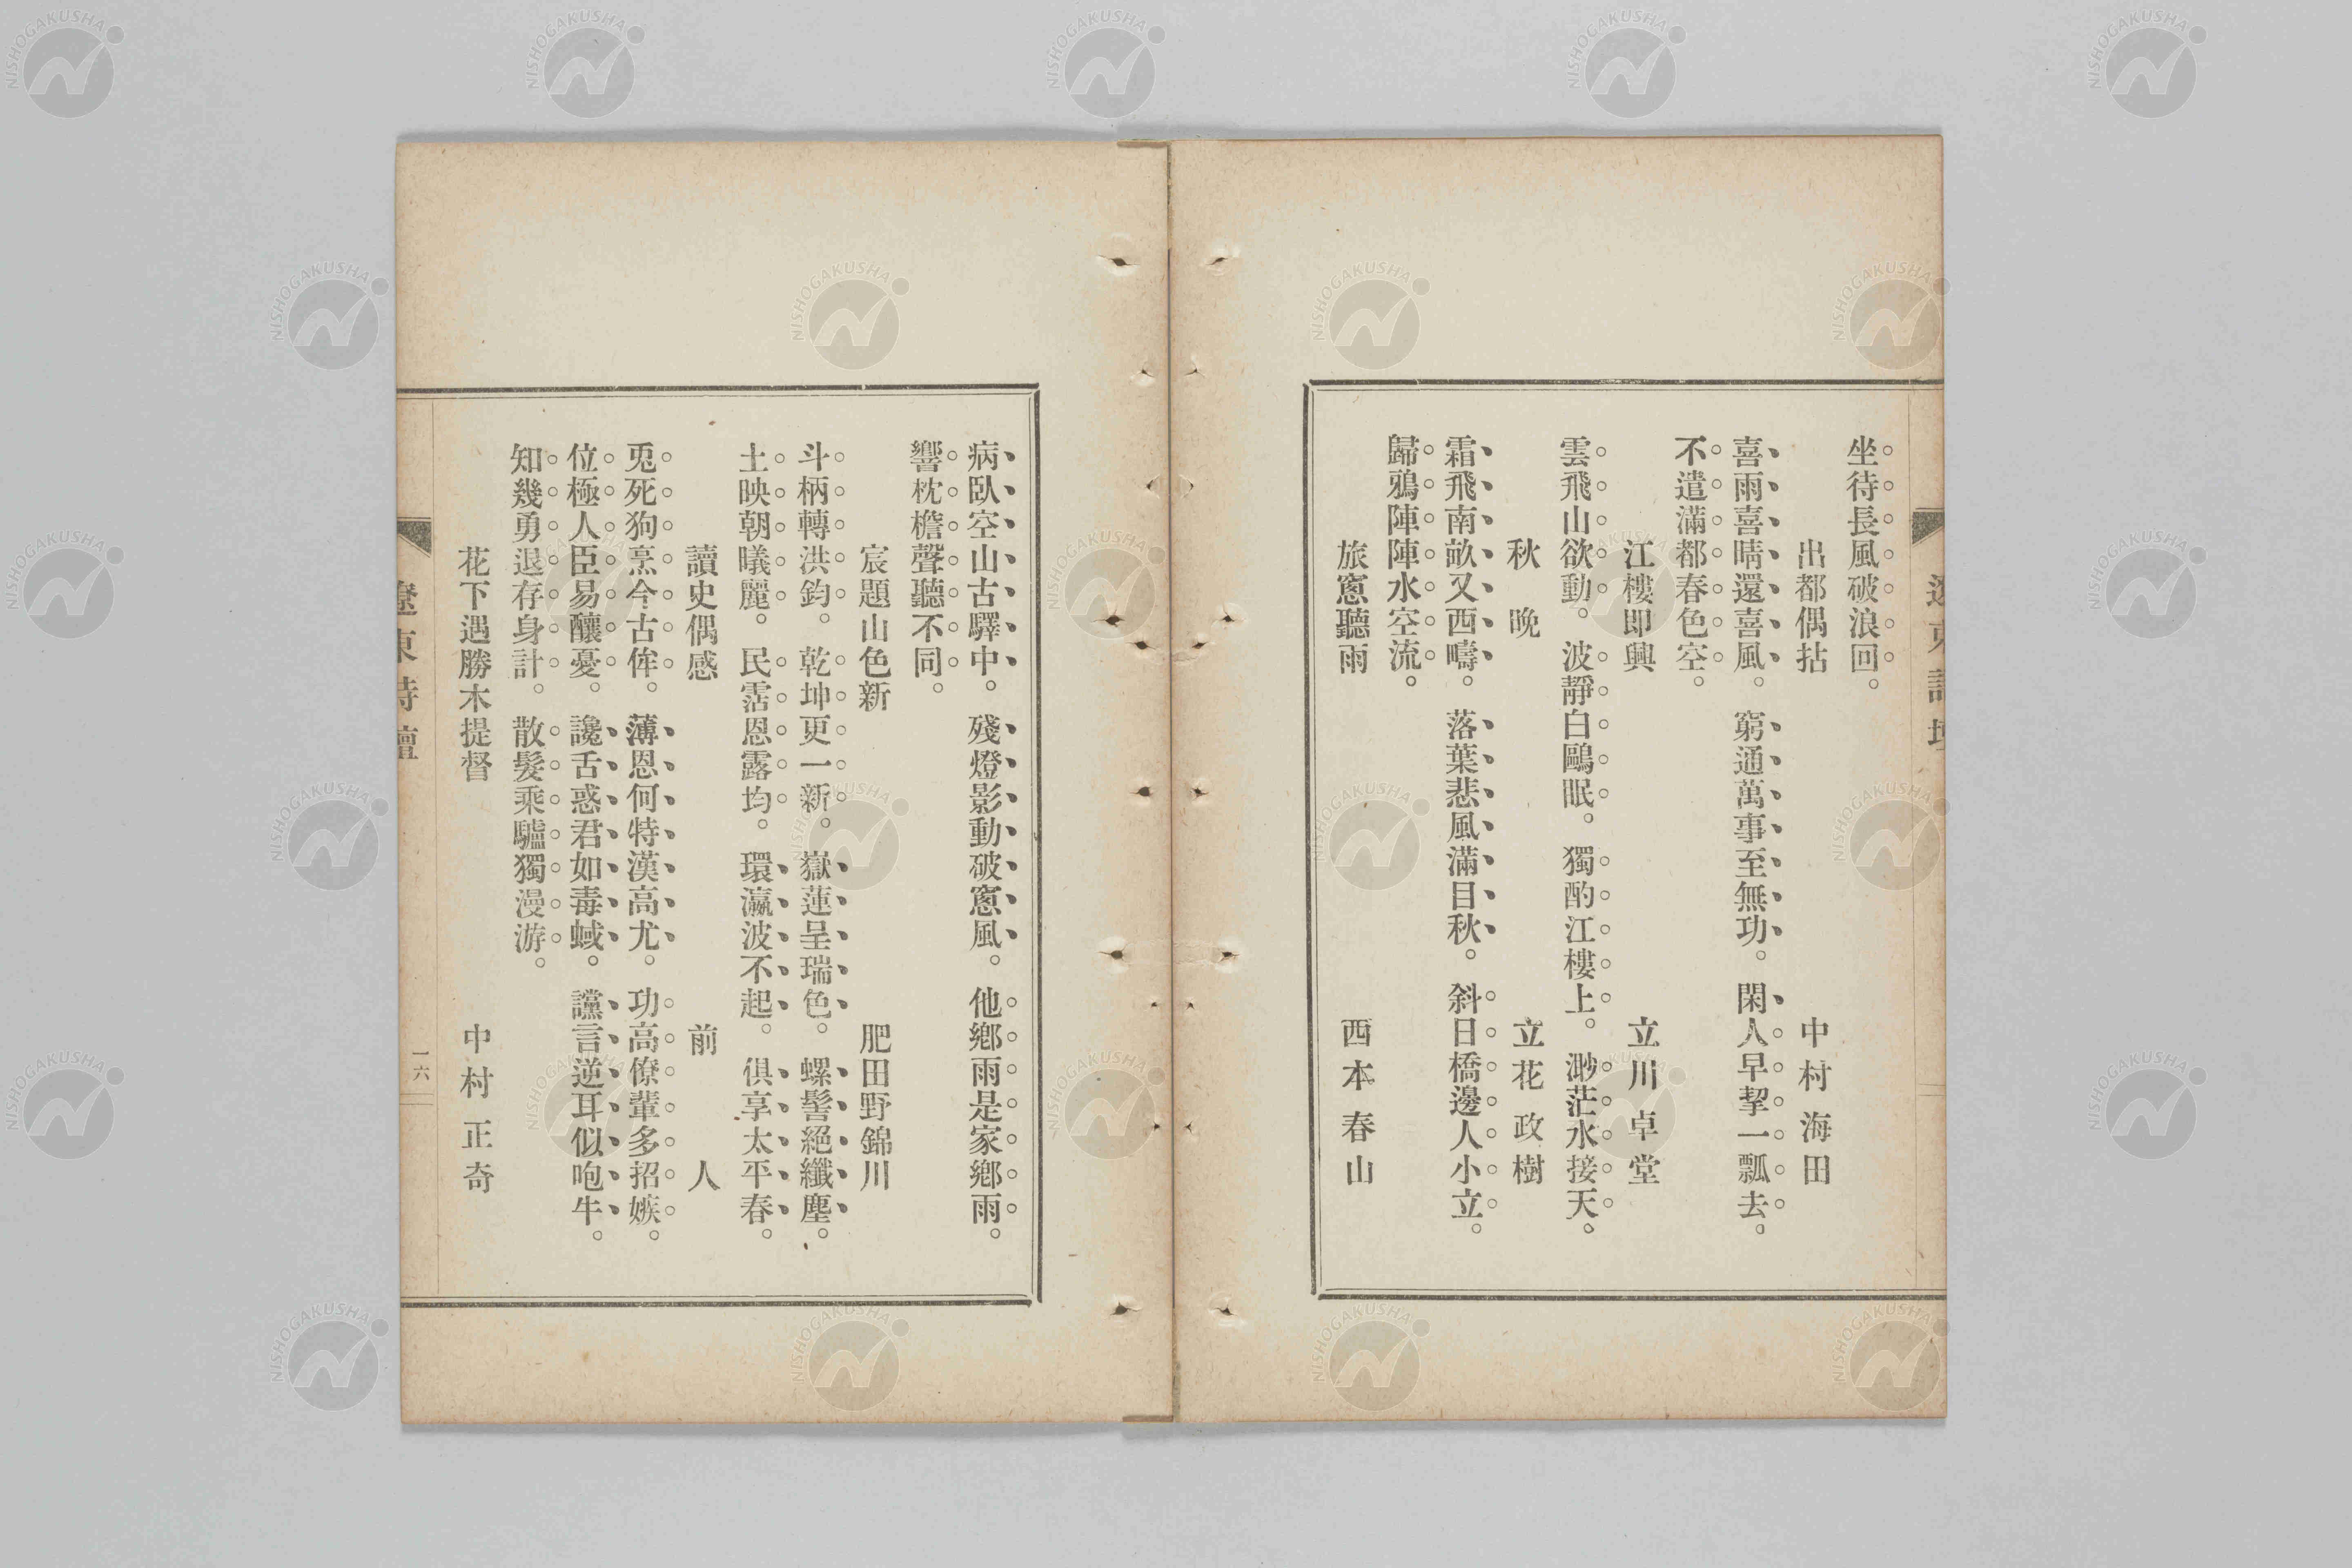 坐待長風破浪回。
出都偶拈　中村海田
喜雨喜晴還喜風。窮通萬事至無功。閑人早挈一瓢去。
不遣滿都春色空。
江樓即興　立川卓堂
雲飛山欲動。波靜白鷗眠。獨酌江樓上。渺茫水接天。
秋晚　立花政樹
霜飛南畝又西疇。落葉悲風滿目秋。斜日橋邊人小立。
歸鴉陣陣水空流。
旅窻聽雨　西本春山
病臥空山古驛中。殘燈影動破窻風。他鄉雨是家鄉雨。
響枕檐聲聽不同。
宸題山色新　肥田野錦川
斗柄轉洪鈞。乾坤更一新。嶽蓮呈瑞色。螺髻絕纖塵。
土映朝曦麗。民霑恩露均。環瀛波不起。俱享太平春。
讀史偶感　前人
兎死狗烹今古侔。薄恩何特漢高尤。功高僚輩多招嫉。
位極人臣易釀憂。讒舌惑君如毒蜮。讜言逆耳似咆牛。
知幾勇退存身計。散髮乘驢獨漫游。
花下遇勝木提督　中村正奇
遼東詩壇
一六
NISHOGAKUSHA